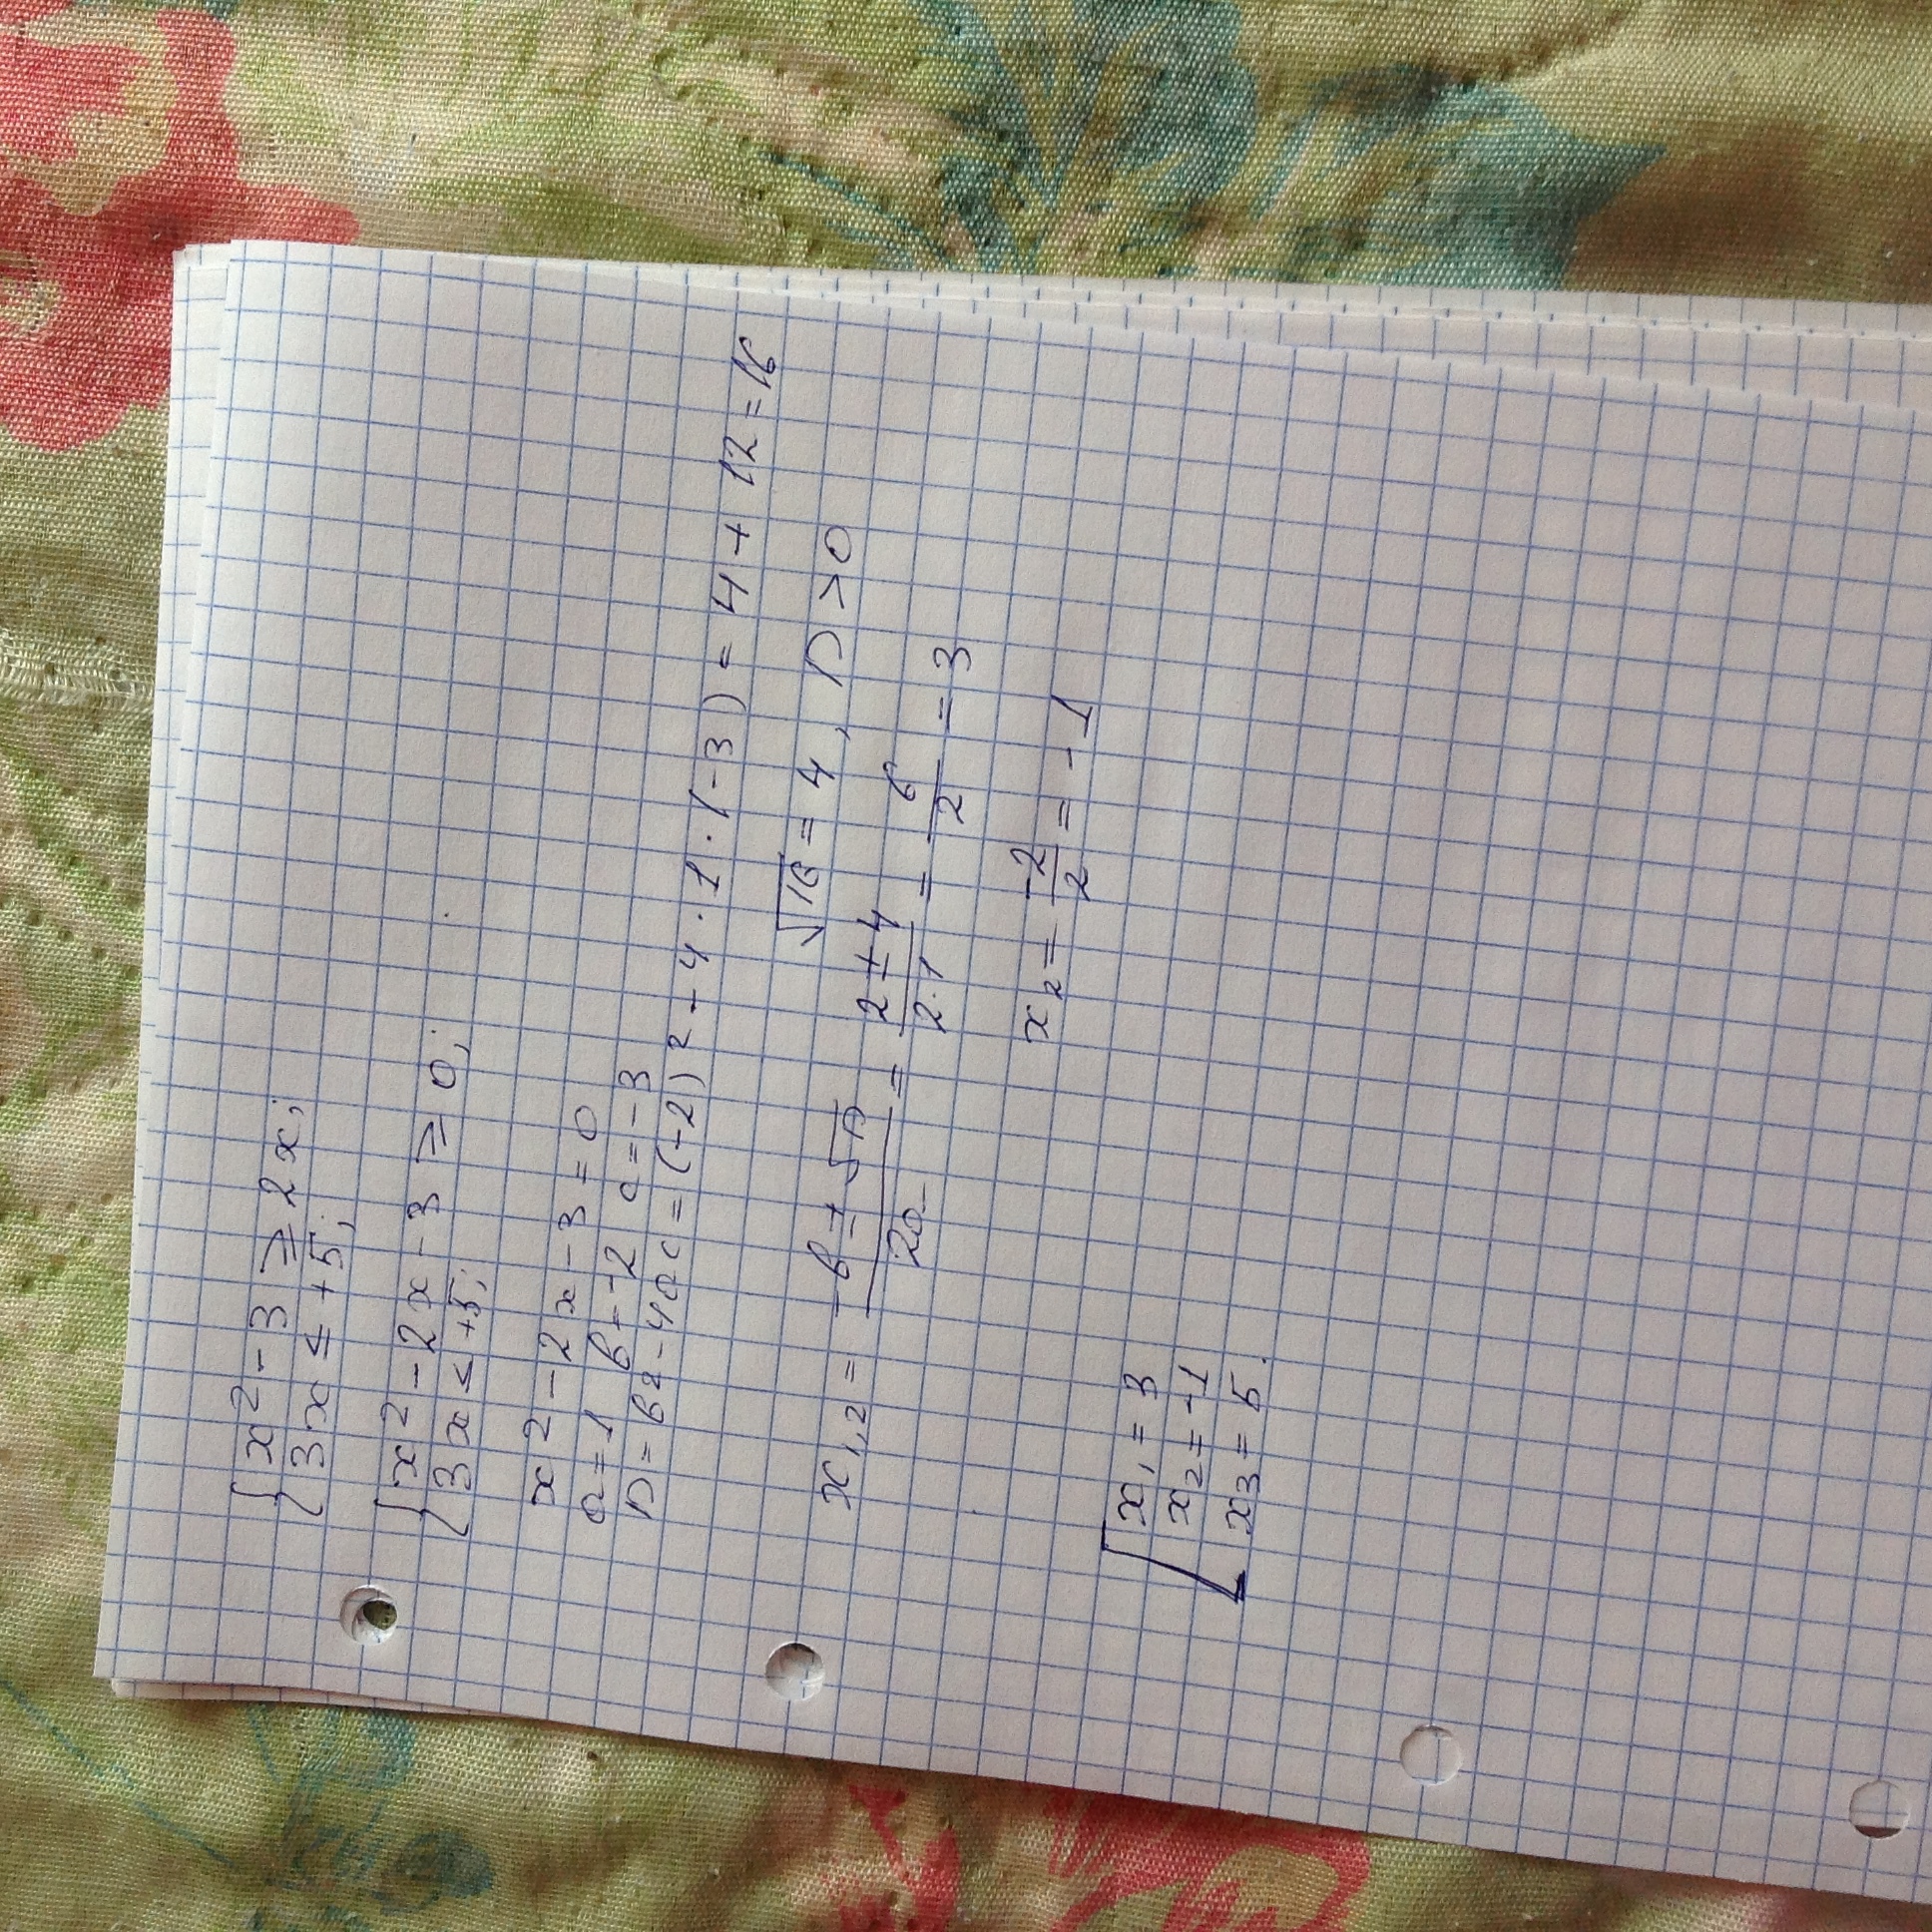 { x² - 3 ≥ 2x;
3x ≤ +5;
{ x² - 2x - 3 ≥ 0;
3x ≤ +5;
x² - 2x - 3 = 0
a = 1 b = -2 c = -3
D = b² - 4ac = (-2)² - 4 · 1 · (-3) = 4 + 12 = 16
√16 = 4, D > 0
x₁,₂ = (-b ± √D)/(2a) = (2 ± 4)/(2·1) = 6/2 = 3
x₂ = -2/2 = -1
[ x₁ = 3
x₂ = -1
x₃ = 5.